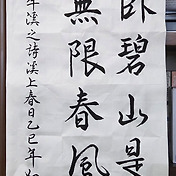 卧碧山是
無限春風
牛溪之詩溪上春日乙巳年